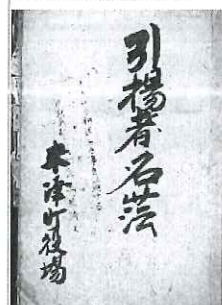 引揚者名簿
木津町役場